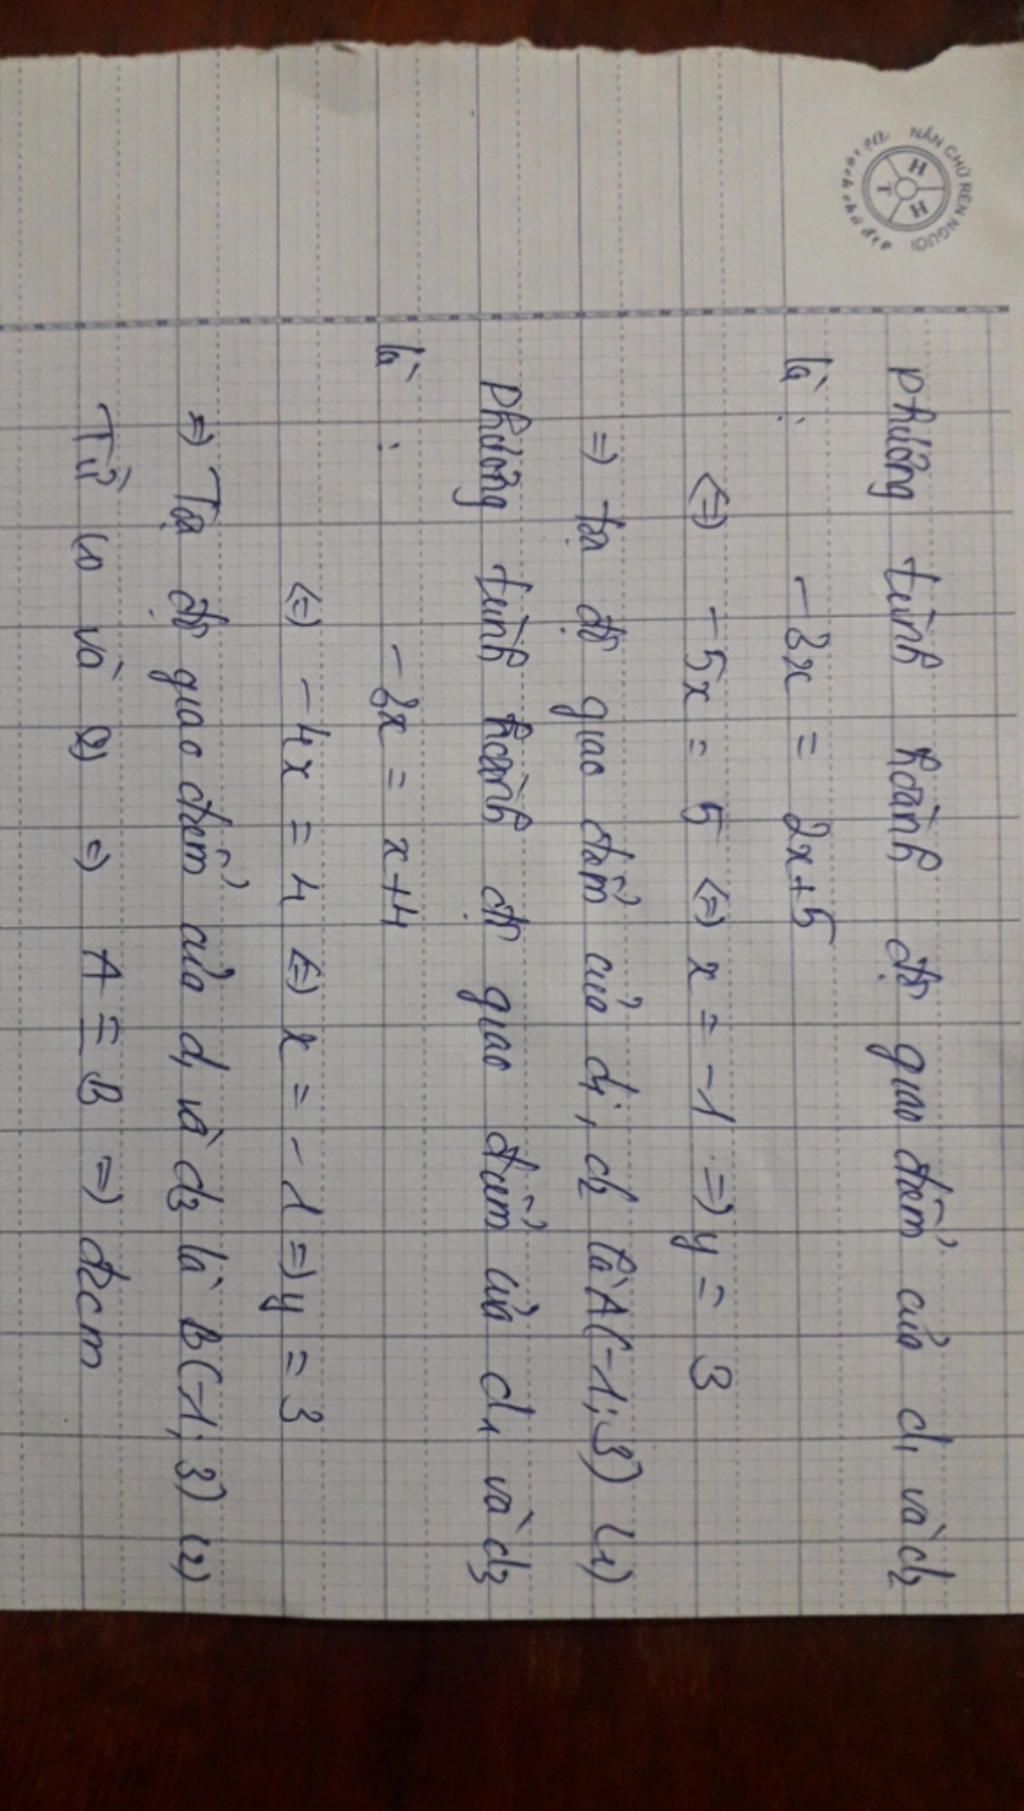 NẮN CHỮ RÈN NGƯỜI
H H T
Phương trình hoành độ giao điểm của d1 và d2
là : -3x = 2x+5
<=> -5x = 5 <=> x = -1 => y = 3
=> tọa độ giao điểm của d1; d2 là A(-1; 3) (1)
Phương trình hoành độ giao điểm của d1 và d3
là : -3x = x+4
<=> -4x = 4 <=> x = -1 => y = 3
=> Tọa độ giao điểm của d1 và d3 là B(-1; 3) (2)
Từ (1) và (2) => A ≡ B => đccm